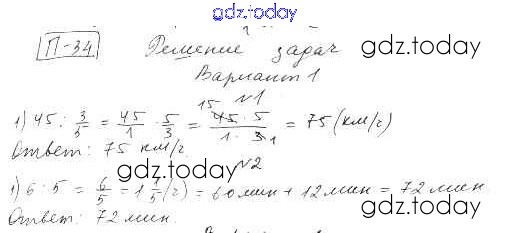 gdz.today
П-34 Решение задач gdz.today
Вариант 1
gdz.today
№1
1) 45 : 3/5 = 45/1 · 5/3 = 45 · 5 / 1 · 3 = 75 (км/ч)
15 1
Ответ: 75 км/ч.
gdz.today №2
1) 6 · 5 = 6/5 = 1 1/5 (ч) = 60 мин + 12 мин = 72 мин.
Ответ: 72 мин. gdz.today